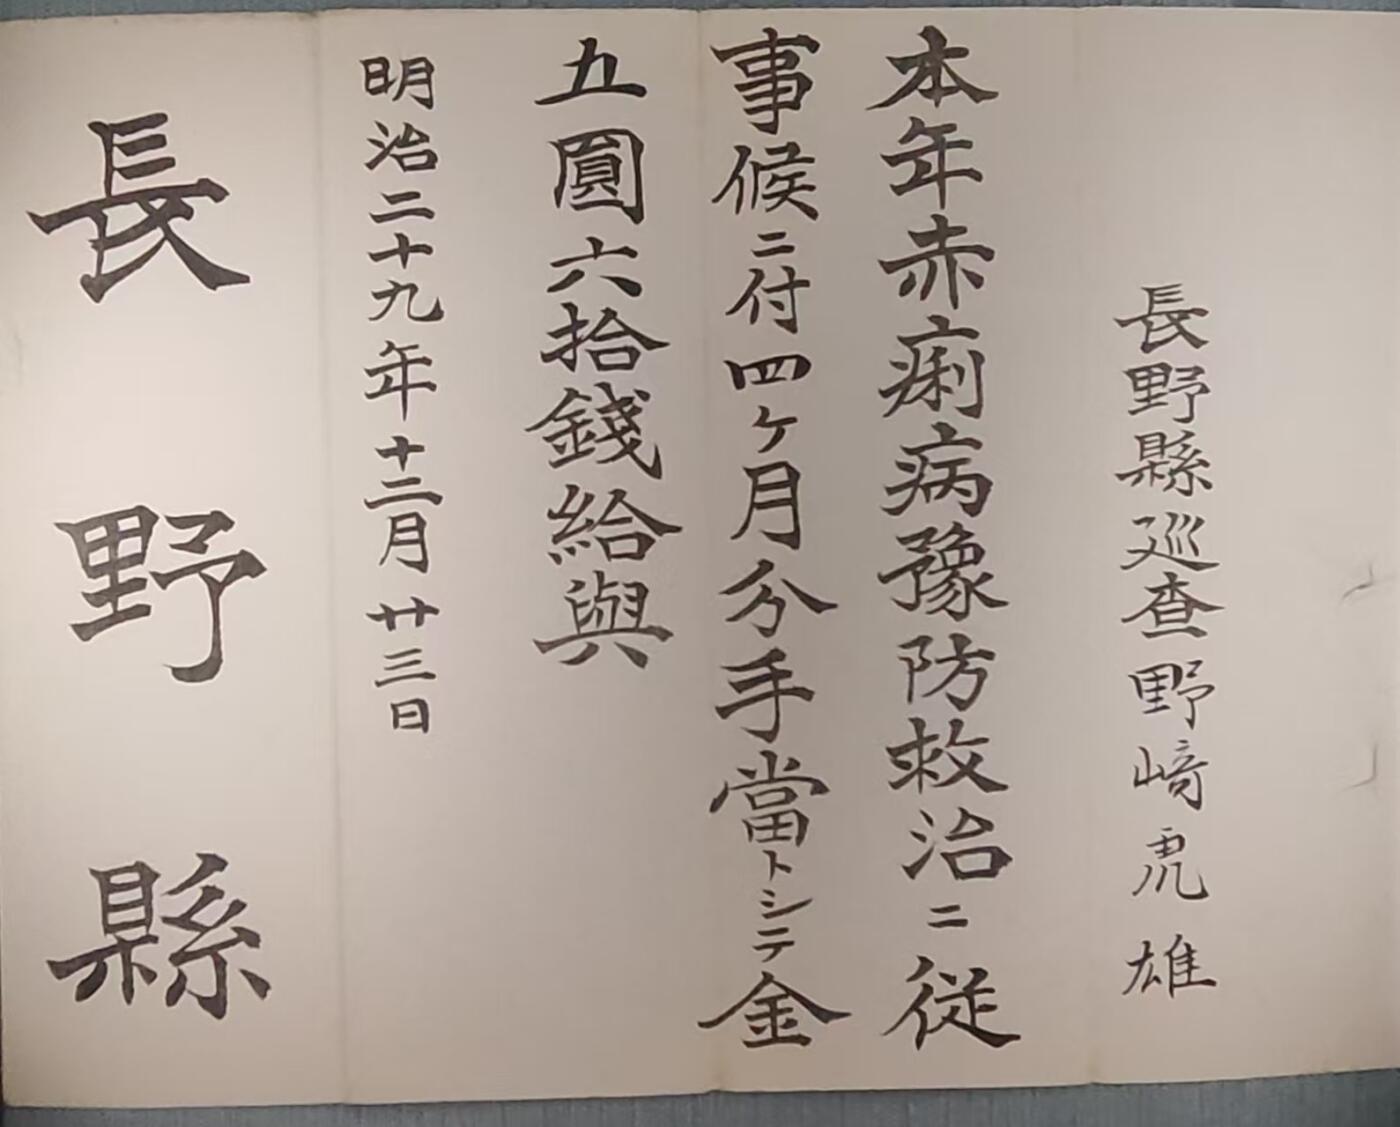 長野縣巡查野﨑虎雄
本年赤痢病豫防救治ニ従
事候ニ付四ケ月分手當トシテ金
五圓六拾錢給與
明治二十九年十二月廿三日
長野縣